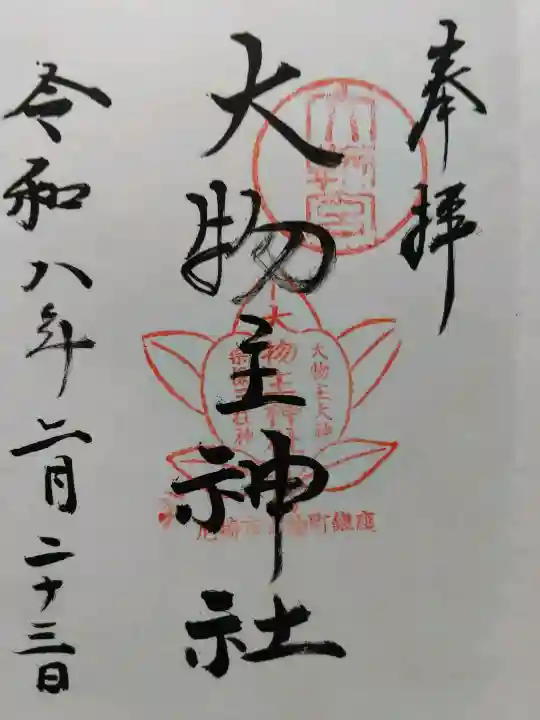 奉拝
大物主神社
令和八年二月二十三日
大物主大神
大物主神社